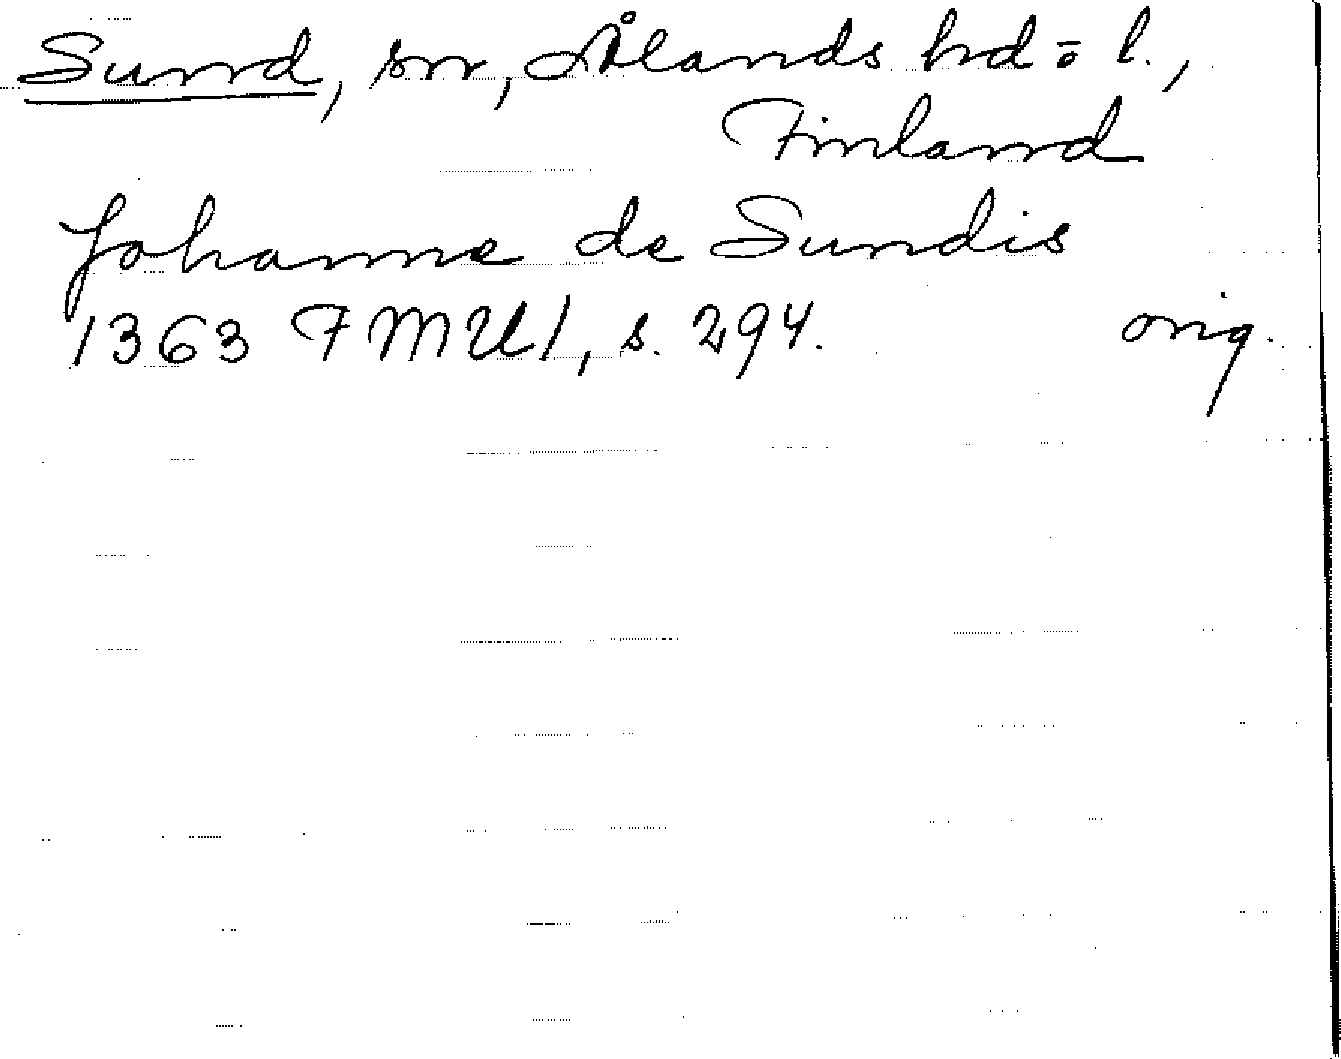 Sund, sn, Ålands hd = l.,
Finland
Johanne de Sundis
1363 FMU 1, s. 294. orig.